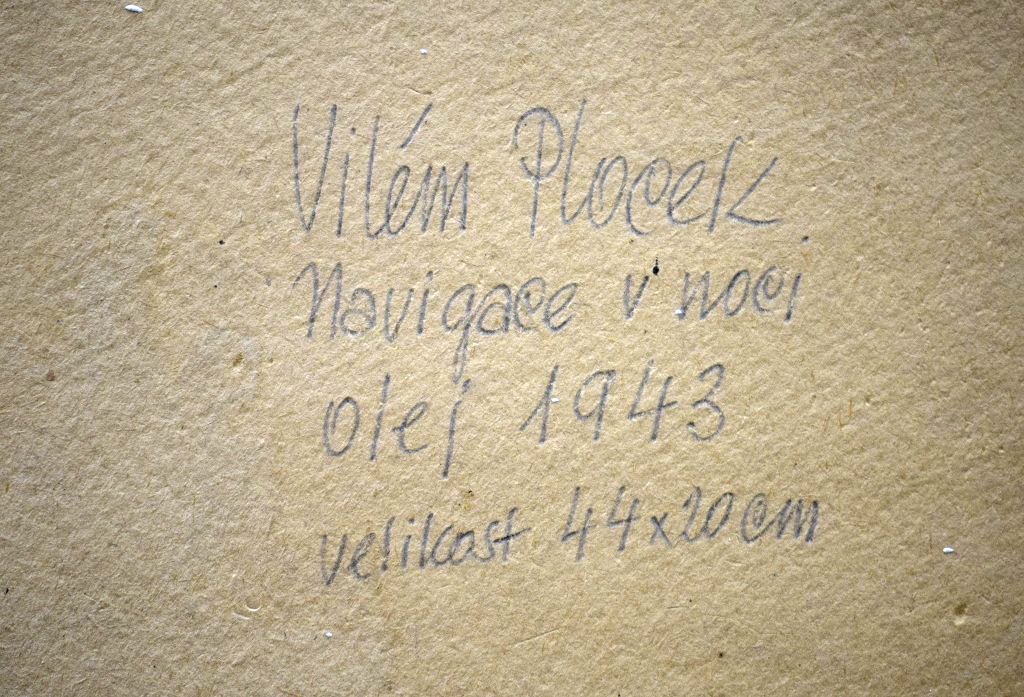 Vilém Plocek
Navigace v noci
olej 1943
velikost 44x20cm